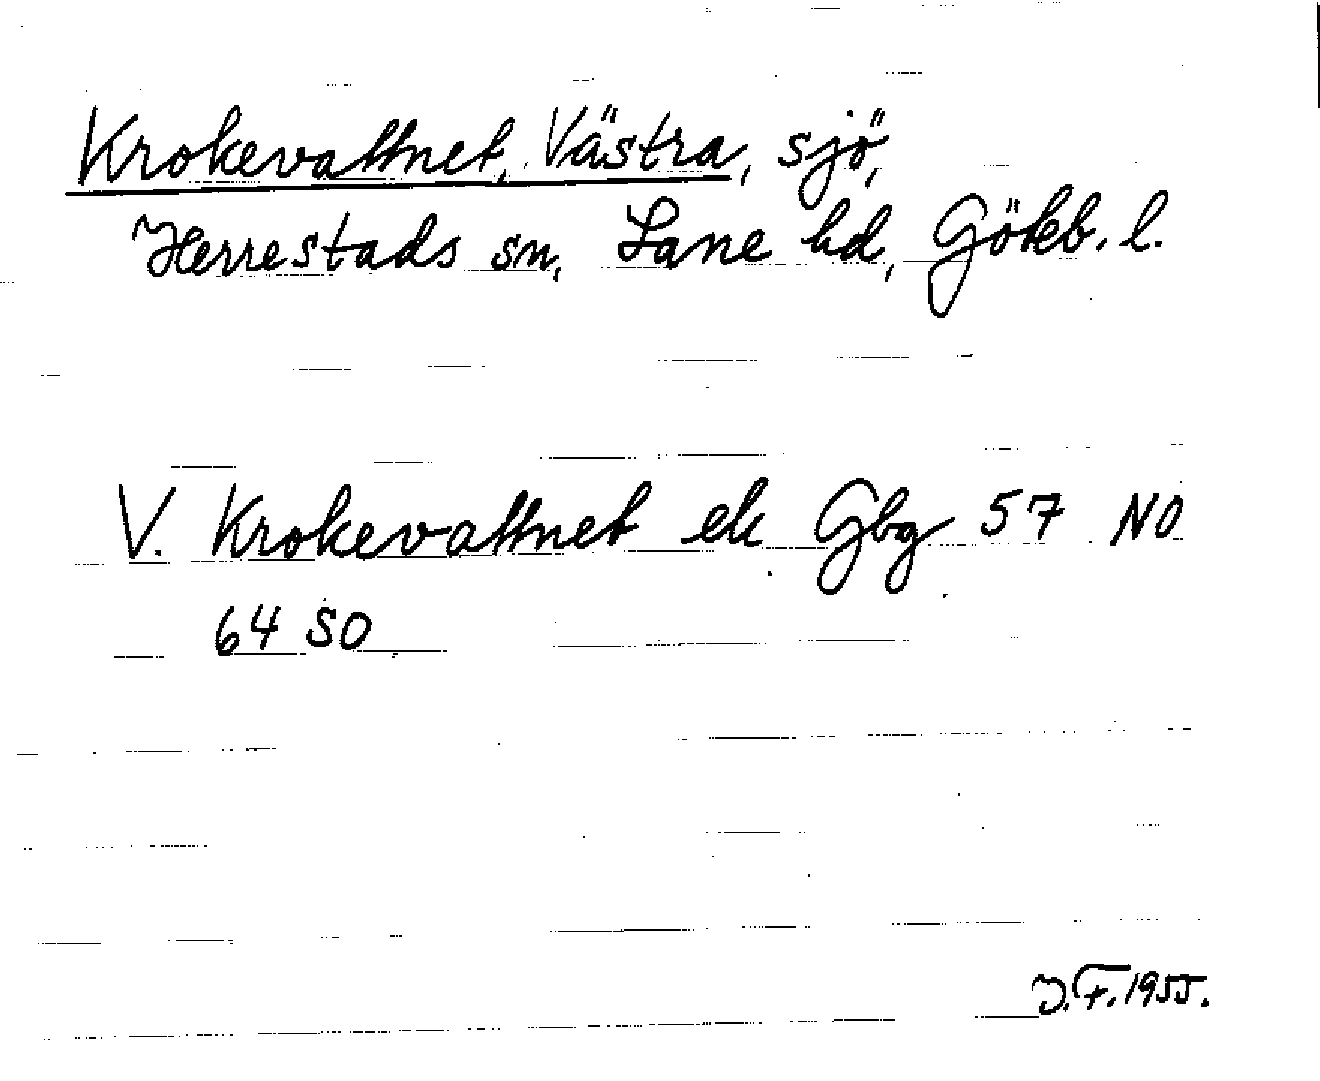 Krokevattnet, Västra, sjö,
Herrestads sn, Lane hd, Gökb. l.
V. Krokevattnet ek Gbg 57 NO
64 SO
J.F. 1955.